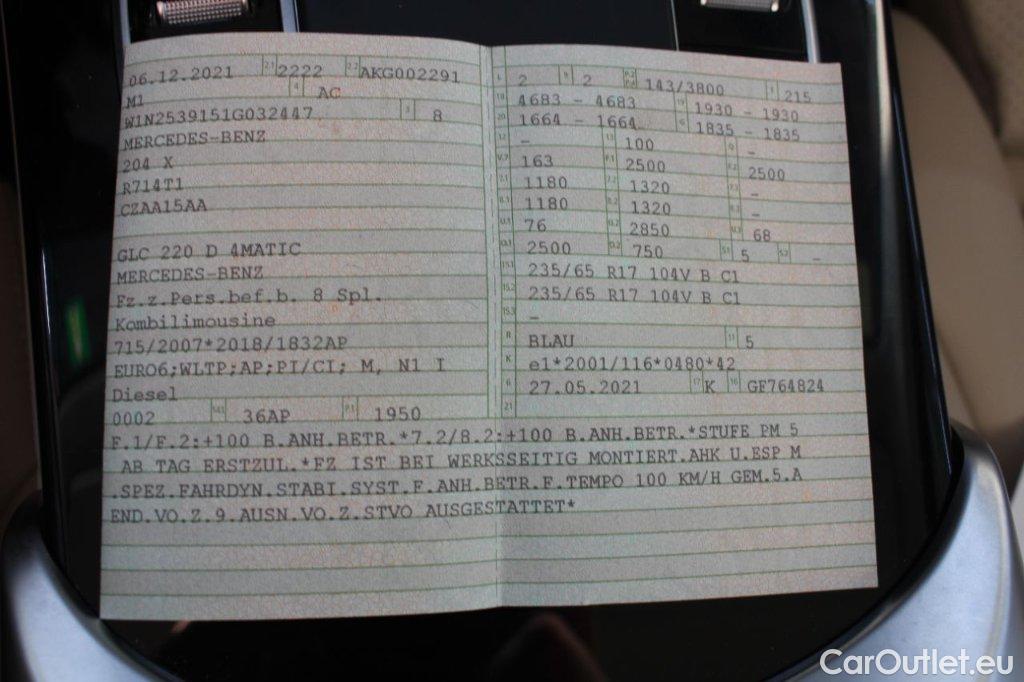 06.12.2021 2.1 2222 2.2 AKG002291
M1 4 AC
W1N2539151G032447 3 8
MERCEDES-BENZ
204 X
R714T1
CZAA15AA
GLC 220 D 4MATIC
MERCEDES-BENZ
Fz.z.Pers.bef.b. 8 Spl.
Kombilimousine
715/2007*2018/1832AP
EURO6;WLTP;AP;PI/CI; M, N1 I
Diesel
0002 14.1 36AP P.1 1950
L 2 9 2 P.2 143/3800 T 215
18 4683 - 4683 19 1930 - 1930
20 1664 - 1664 G 1835 - 1835
12 - 13 100 Q -
V.7 163 F.1 2500 F.2 2500
7.1 1180 7.2 1320 7.3 -
8.1 1180 8.2 1320 8.3 -
U.1 76 U.2 2850 U.3 68
O.1 2500 O.2 750 S.1 5 S.2 -
15.1 235/65 R17 104V B C1
15.2 235/65 R17 104V B C1
15.3 -
R BLAU 11 5
K e1*2001/116*0480*42
6 27.05.2021 17 K 16 GF764824
21
F.1/F.2:+100 B.ANH.BETR.*7.2/8.2:+100 B.ANH.BETR.*STUFE PM 5
AB TAG ERSTZUL.*FZ IST BEI WERKSSEITIG MONTIERT.AHK U.ESP M
.SPEZ.FAHRDYN.STABI.SYST.F.ANH.BETR.F.TEMPO 100 KM/H GEM.5.A
END.VO.Z.9.AUSN.VO.Z.STVO AUSGESTATTET*
CarOutlet.eu